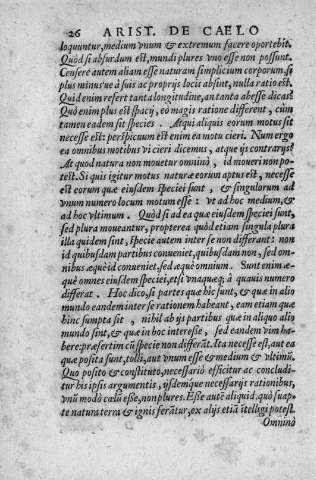 26 ARIST. DE CAELO
loquuntur, medium vnum & extremum facere oportebit.
Quòd si absurdum est, mundi plures vno esse non possunt.
Censere autem aliam esse naturam simplicium corporum, si
plus minus'ue à suis ac proprijs locis absint, nulla ratio est.
Quid enim refert tanta longitudine, an tanta abesse dicas?
Quò enim plus est spacij, eo magis ratione different, cùm
tamen eadem sit species. Atqui aliquis eorum motus sit
necesse est: perspicuum est enim ea motu cieri. Num ergo
ea omnibus motibus vi cieri dicemus, atque ijs contrarijs?
At quod natura non mouetur omninò, id moueri non po-
test. Si quis igitur motus naturæ eorum aptus est, necesse
est eorum quæ eiusdem speciei sunt, & singulorum ad
vnum numero locum motum esse: vt ad hoc medium, &
ad hoc vltimum. Quòd si ad ea quæ eiusdem speciei sunt,
sed plura moueantur, propterea quòd etiam singula plura
illa quidem sint, specie autem inter se non differant: non
id quibusdam partibus conueniet, quibusdam non, sed om-
nibus æquè id conueniet, sed æquè omnium. Sunt enim æ-
què omnes eiusdem speciei, etsi vnaquæq; à quauis numero
differat. Hoc dico, si partes quæ hîc sunt, & quæ in alio
mundo eandem inter se rationem habeant, eam etiam quæ
hinc sumpta sit, nihil ab ijs partibus quæ in aliquo alio
mundo sint, & quæ in hoc interesse, sed eandem vim ha-
bere: præsertim cùm specie non differāt. Ita necesse est, aut ea
quæ posita sunt, tolli, aut vnum esse & medium & vltimū.
Quo posito & constituto, necessariò efficitur ac concludi-
tur his ipsis argumentis, ijsdemque necessarijs rationibus,
vnū modò cœlū esse, non plures. Esse autē aliquid, quò suap-
te natura terra & ignis ferātur, ex alijs etiā ītelligi potest.
Omninò